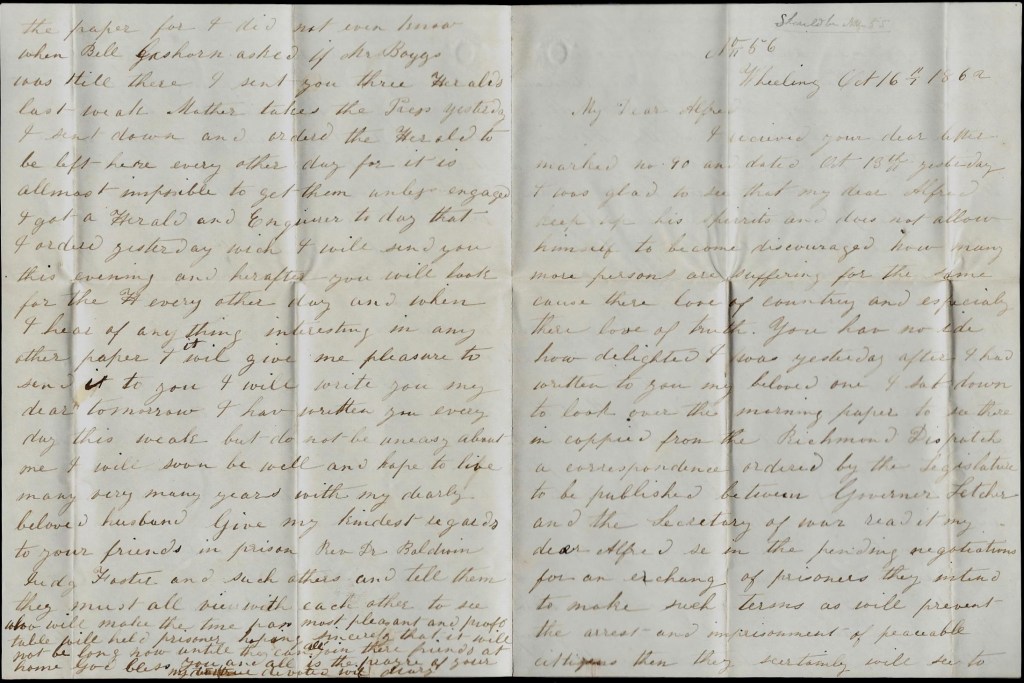 the paper for I did not even know
when Bell Goshorn asked if Mr Boggs
was still there I sent you three Heralds
last weak Mother takes the Press yesterday
I sent down and orderd the Herald to
be left here every other day for it is
allmost impsible to get them unless engaged
I got a Herald and Enquirer to day that
I orderd yesterday wich I will send you
this evening and herafter you will look
for the H every other day and when
I hear of any thing interesting in any
other paper I it wil give me pleasure to
send it to you I will write you my
dear tomorrow I hav written you every
day this weak but do not be uneasy about
me I will soon be well and hope to live
many very many years with my dearly
beloved husband Give my kindest regards
to your friends in prison Rev Dr Baldwin
Judg Foster and such others and tell them
they must all vie with each other to see
who will make the time pass most pleasant and profi
table will held prisoner hoping sincerely that it will
not be long now until they can all join there friends at
home God bless you one all is the prayre of your
my true devoted wife deary
Should be No. 55
No 56
Wheeling Oct 16th 1862
My Dear Alfred
I received your dear letter
marked no 40 and dated Oct 13th yesterday
I was glad to see that my dear Alfred
keep up his spirits and does not allow
himself to become discouraged how many
more persons are suffering for the same
cause there love of country and especialy
there love of truth. You hav no ide
how delighted I was yesterday after I had
written to you my beloved one I sat down
to look over the morning paper to see there
in coppied from the Richmond Dispatch
a correspondence ordered by the Legislature
to be published between Governer Letcher
and the Secretary of war read it my
dear Alfred se in the pending negotiations
for an exchang of prisoners they intend
to make such terms as will prevent
the arrest and imprisonment of peaceable
citizens then they scertainly will see to